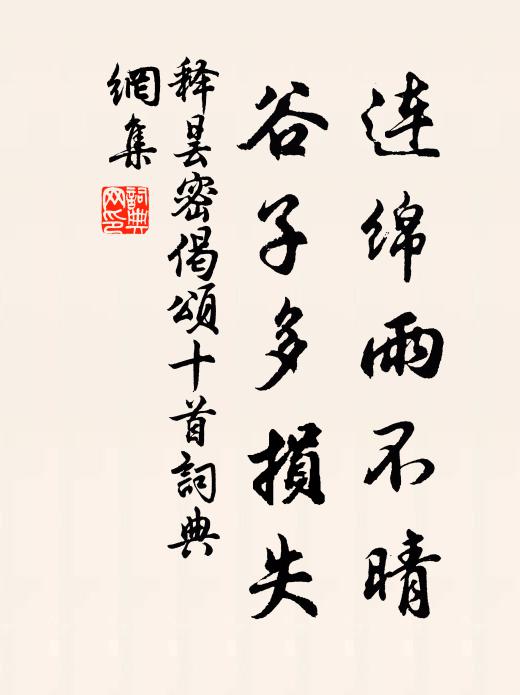 连绵雨不晴
谷子多损失
释昙密偈颂十首詞典
網集
詞典
网印